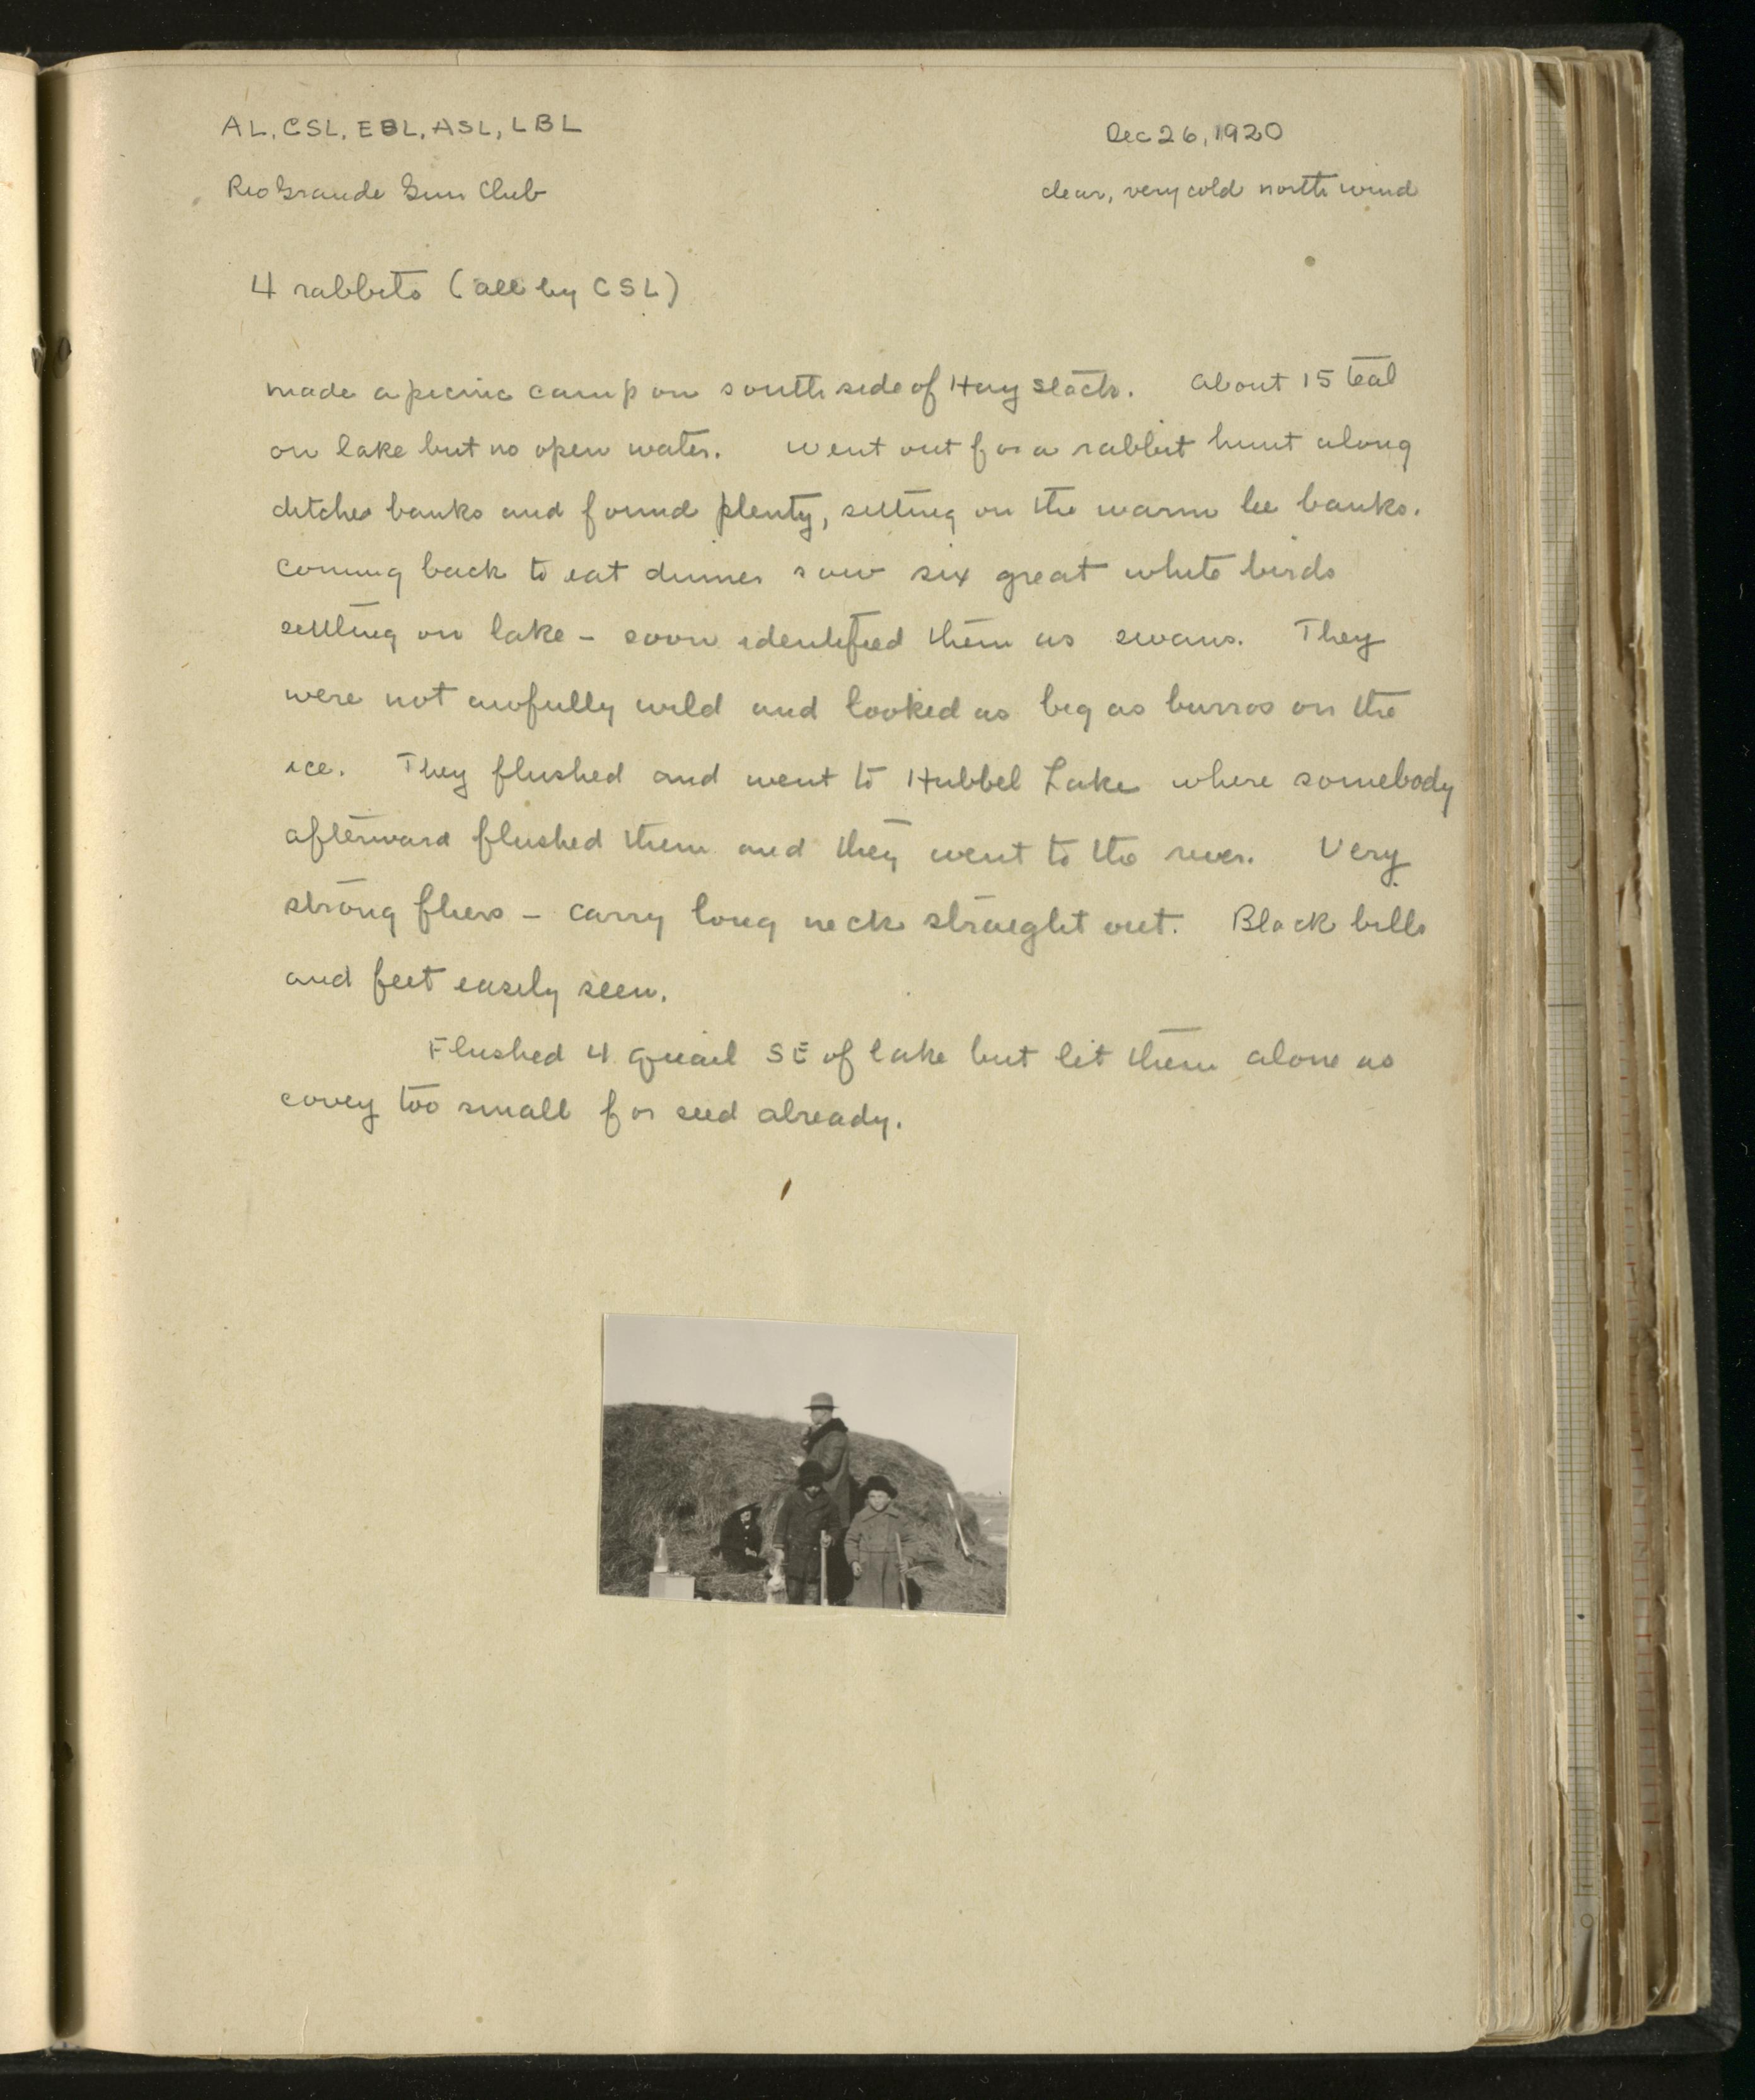 AL, CSL, EBL, ASL, LBL
Dec 26, 1920
Rio Grande Gun Club
clear, very cold north wind
4 rabbits (all by CSL)
made a picnic camp on south side of Hay stack. About 15 teal
on lake but no open water. Went out for a rabbit hunt along
ditches banks and found plenty, setting on the warm lee banks.
Coming back to eat dinner saw six great white birds
settling on lake – soon identified them as swans. They
were not awfully wild and looked as big as burros on the
ice. They flushed and went to Hubbel Lake where somebody
afterward flushed them and they went to the river. Very
strong fliers – carry long neck straight out. Black bills
and feet easily seen.
Flushed 4 quail SE of lake but let them alone as
covey too small for seed already.